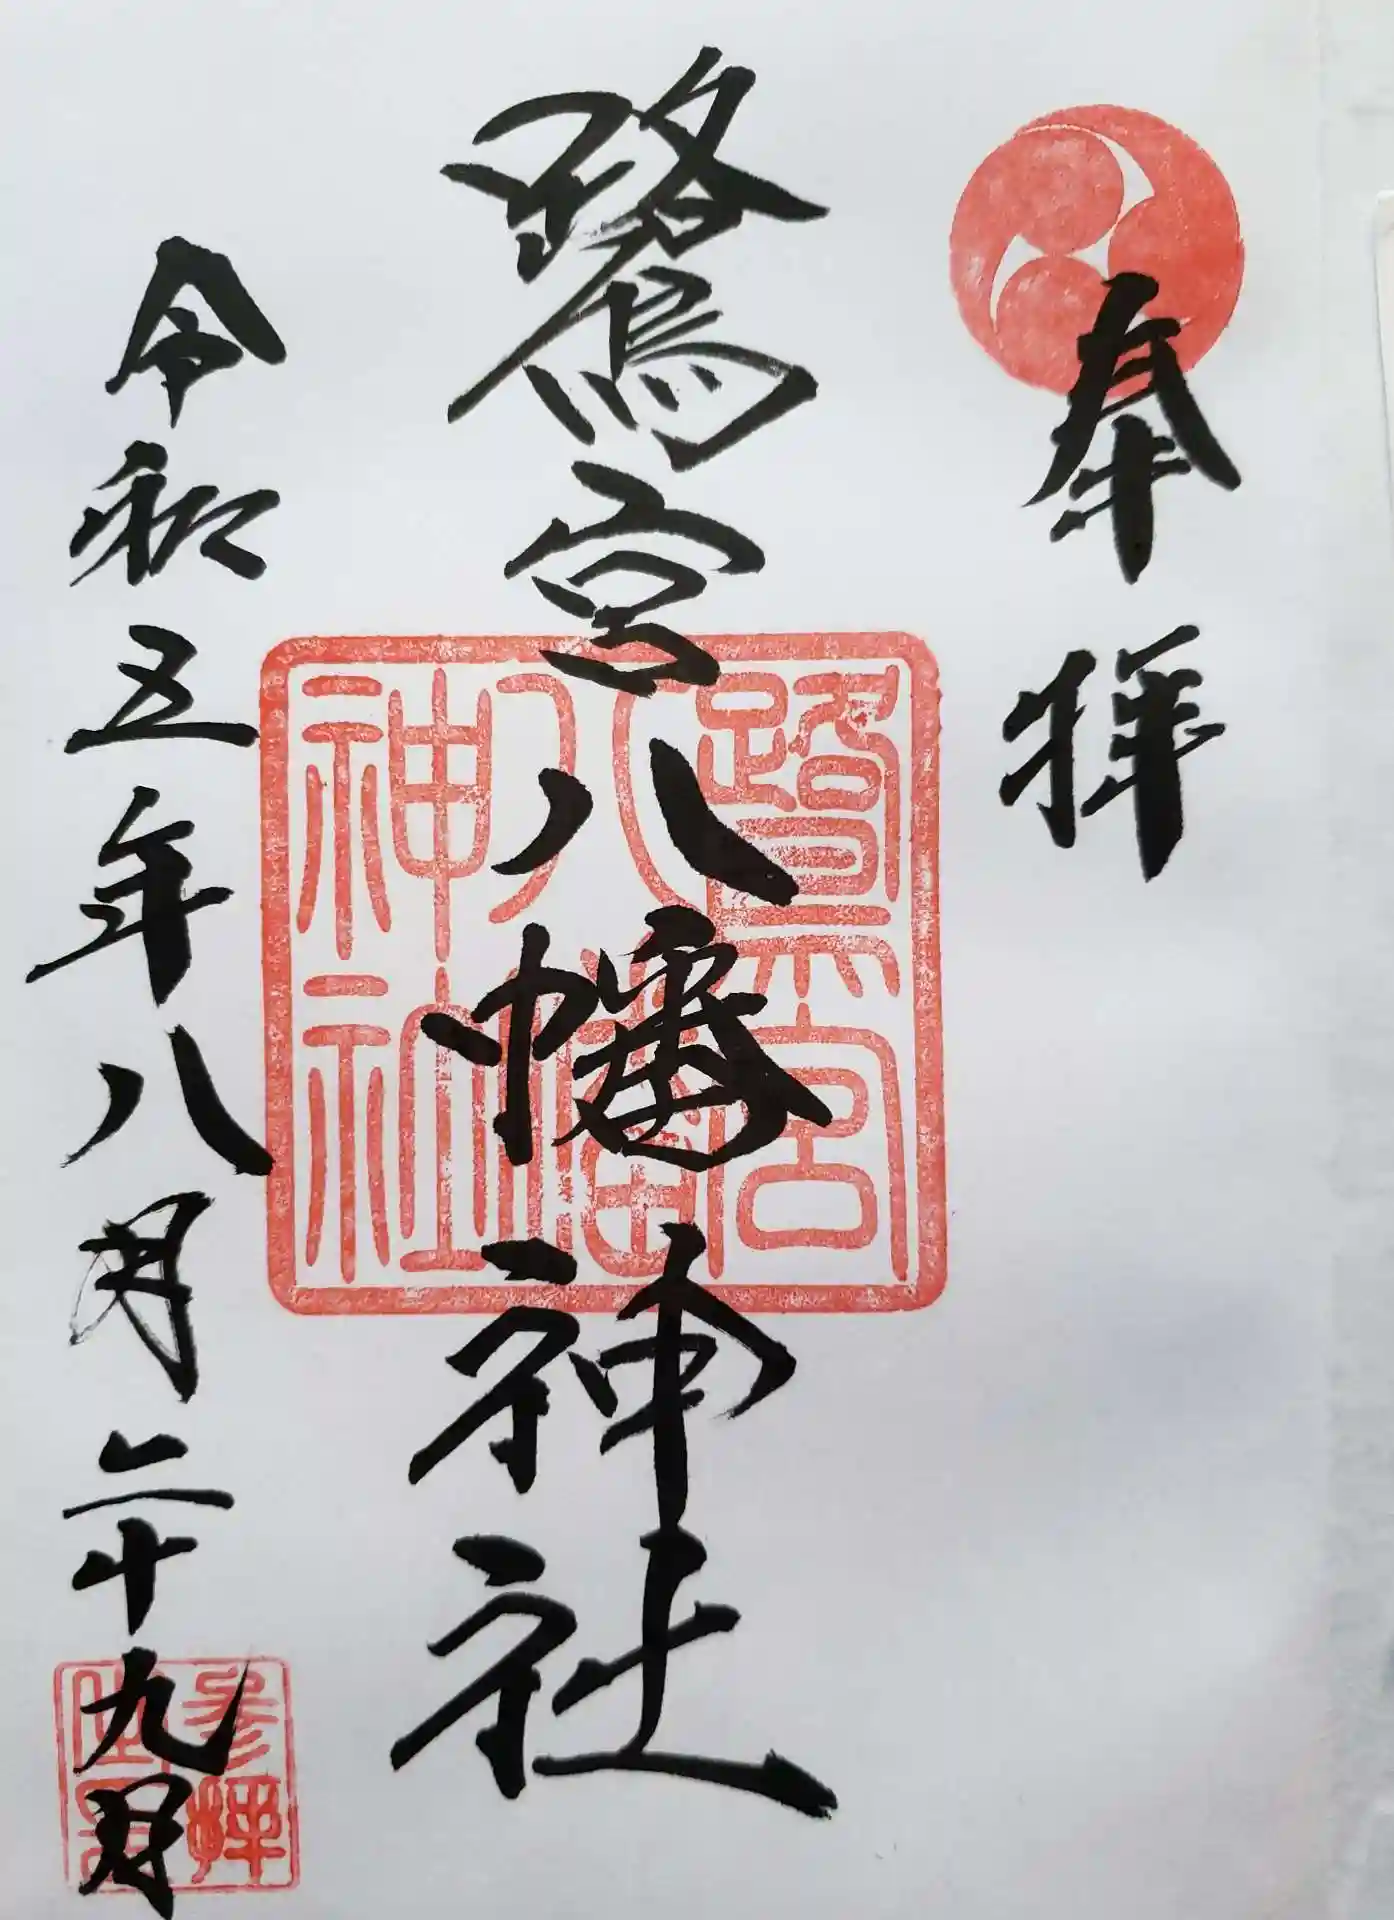 奉拝
鷺宮八幡神社
令和五年八月二十九日
鷺宮
八幡
神社
参拝